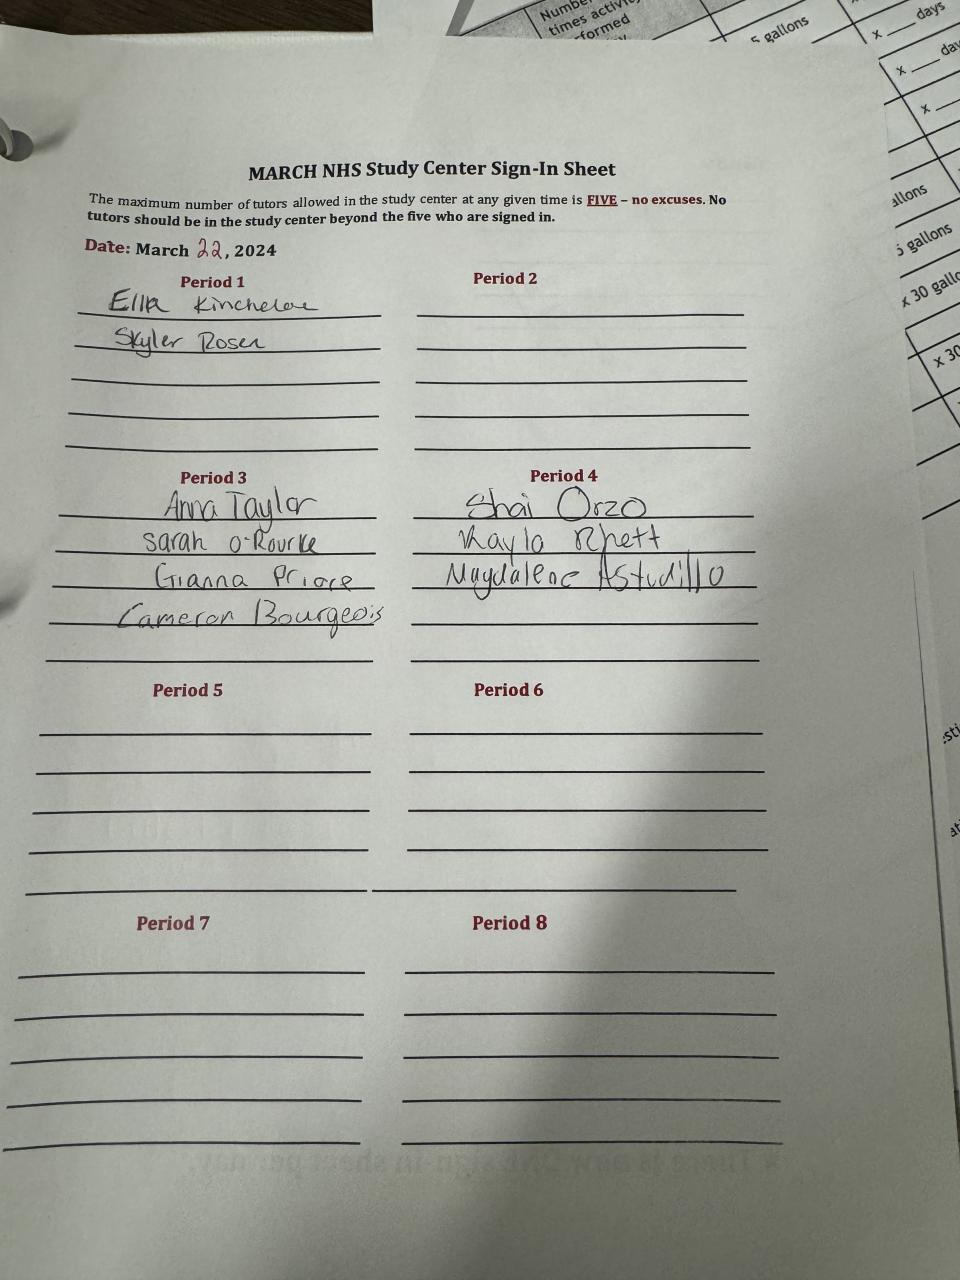 Number
times activity
formed
5 gallons
x ___ days
x ___ day
x
allons
5 gallons
x 30 gallo
x 30
MARCH NHS Study Center Sign-In Sheet
The maximum number of tutors allowed in the study center at any given time is FIVE – no excuses. No
tutors should be in the study center beyond the five who are signed in.
Date: March 22, 2024
Period 1
Ella Kincheloe
Skyler Rosen
Period 2
Period 3
Anna Taylor
Sarah O'Rourke
Gianna Priore
Cameron Bourgeois
Period 4
Shai Orzo
Kayla Rhett
Magdalene Astudillo
Period 5
Period 6
Period 7
Period 8